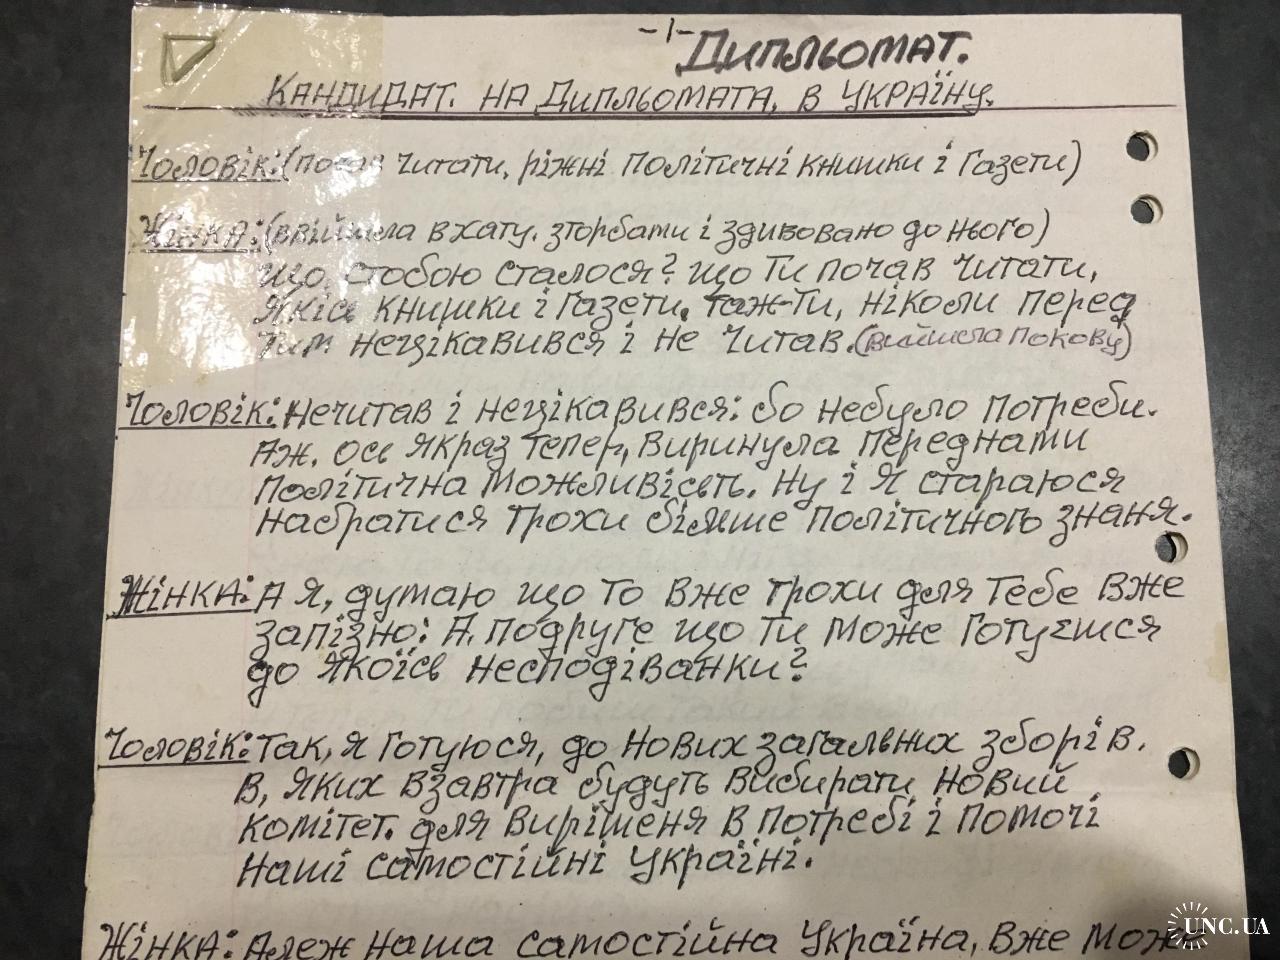 -1-
Дипльомат.
Кандидат. на Дипльомата, в Україну.
Чоловік: (почав читати, ріжні політичні книшки і газети)
Жінка: (ввійшла в хату. зторбами і здивовано до нього)
що, стобою сталося? що ти почав читати,
якісь книшки і газети, таж-ти, ніколи перед
тим нецікавився і не читав. (вийшсла поковy)
Чоловік: нечитав і нецікавився: бо небуло потреби.
Аж. ось якраз тепер, виринула переднами
політична можливість. ну і я стараюся
набратися трохи більше політичного знаня.
Жінка: А я, думаю що то вже трохи для тебе вже
запізно: А. подруге що ти може готуєшся
до якоїсь несподіванки?
Чоловік: так, я готуюся, до нових загальних зборів.
в, яких взавтра будуть вибирати новий
комітет. для вирішеня в потребі і помочі
наші самостійні україні.
Жінка: Алеж наша самостійна Україна, вже може
UNC.UA